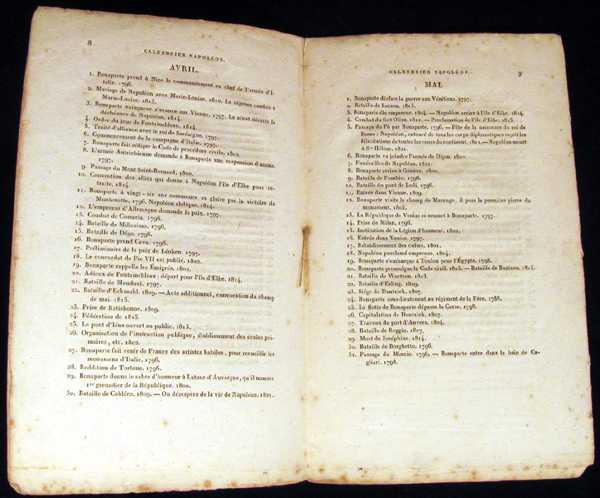 8
CALENDRIER NAPOLÉON.
AVRIL.
1. Bonaparte prend à Nice le commandement en chef de l'armée d'I-
talie. 1796.
2. Mariage de Napoléon avec Marie-Louise. 1810.
Marie-Louise. 1813.
3. Bonaparte
déchéance de Napoléon. 1814.
4. Ordre du jour de Fontainebleau. 1814.
5. Traité d'alliance avec le roi de Sardaigne. 1797.
6. Commencement de la campagne d'Italie. 1796.
7. Bonaparte fait rédiger le Code de procédure civile.
8. L'armée Autrichienne demande à Bonaparte une suspension d'armes.
1797.
9. Passage du Mont Saint-Bernard. 1800.
10. Convention des alliés qui donne à Napoléon l'île d'Elbe pour re-
traite. 1814.
11. Bonaparte à vingt-six ans commence sa gloire par la victoire de
Montenotte. 1796. Napoléon abdique. 1814.
12. L'empereur d'Allemagne demande la paix. 1797.
13. Combat de Cossaria. 1796.
14. Bataille de Millesimo. 1796.
15. Bataille de Dégo. 1796.
16. Bonaparte prend Ceva. 1796.
17. Préliminaires de la paix de Léoben. 1797.
18. Le concordat de Pie VII est publié. 1802.
19. Bonaparte rappelle les émigrés. 1801.
20. Adieux de Fontainebleau, départ pour l'île d'Elbe. 1814.
21. Bataille de Mondovi. 1797.
22. Bataille d'Eckmuhl. 1809. — Acte additionnel, convocation du champ
de mai. 1815.
23. Prise de Ratisbonne. 1809.
24. Fédération de 1815.
25. Le pont d'Iéna ouvert au public. 1813.
26. Organisation de l'instruction publique, établissement des écoles pri-
maires, etc. 1802.
27. Bonaparte fait venir de France des artistes habiles, pour recueillir les
monumens d'Italie. 1796.
28. Reddition de Tortone. 1796.
29. Bonaparte donne un sabre d'honneur à Latour d'Auvergne, qu'il nomme
1er grenadier de la République. 1800.
30. Bataille de 1809. — On désespère de la vie de Napoléon. 1821.
CALENDRIER NAPOLÉON.
9
MAI.
1. Bonaparte déclare la guerre aux Vénitiens. 1797.
2. Bataille de Lutzen. 1813.
3. Bonaparte élu empereur. 1804. — Napoléon arrive à l'île d'Elbe. 1814.
4. Combat du fort Olivo. 1811. — Proclamation de l'île d'Elbe. 1815.
5. Passage du Pô par Bonaparte. 1796. — Fête de la naissance du roi de
Rome: Napoléon, entouré de tout le corps diplomatique reçoit les
félicitations de toutes les cours du continent. 1811. — Napoléon meurt
à Ste-Hélène. 1821.
6. Bonaparte va joindre l'armée de Dijon. 1800.
7. Funérailles de Napoléon. 1821.
8. Bonaparte arrive à Genève. 1800.
9. Bataille de Fombio. 1796.
10. Bataille du pont de Lodi. 1796.
11. Entrée dans Vienne. 1809.
12. Bonaparte visite le champ de Marengo, il pose la première pierre du
monument. 1805.
13. La République de Venise se soumet à Bonaparte. 1797.
14. Prise de Milan. 1796.
15. Institution de la Légion d'honneur. 1802.
16. Entrée dans Venise. 1797.
17. Rétablissement des cultes. 1801.
18. Napoléon proclamé empereur. 1804.
19. Bonaparte s'embarque à Toulon pour l'Égypte. 1798.
20. Bonaparte promulgue le Code civil. — Bataille de Bautzen. 1813.
21. Bataille de Wurtzen. 1813.
22. Bataille d'Esling. 1809.
23. Siège de Dantzick. 1807.
24. Bonaparte sous-lieutenant au régiment de la Fère.
25. La flotte de Bonaparte dépasse la Corse. 1798.
26. Capitulation de Dantzick. 1807.
27. Travaux du port d'Anvers. 1804.
28. Bataille de Reggio. 1807.
29. Mort de Joséphine. 1814.
30. Bataille de Borghetto. 1796.
31. Passage du Mincio. 1796. — Bonaparte entre dans la baie de Ca-
gliari. 1798.